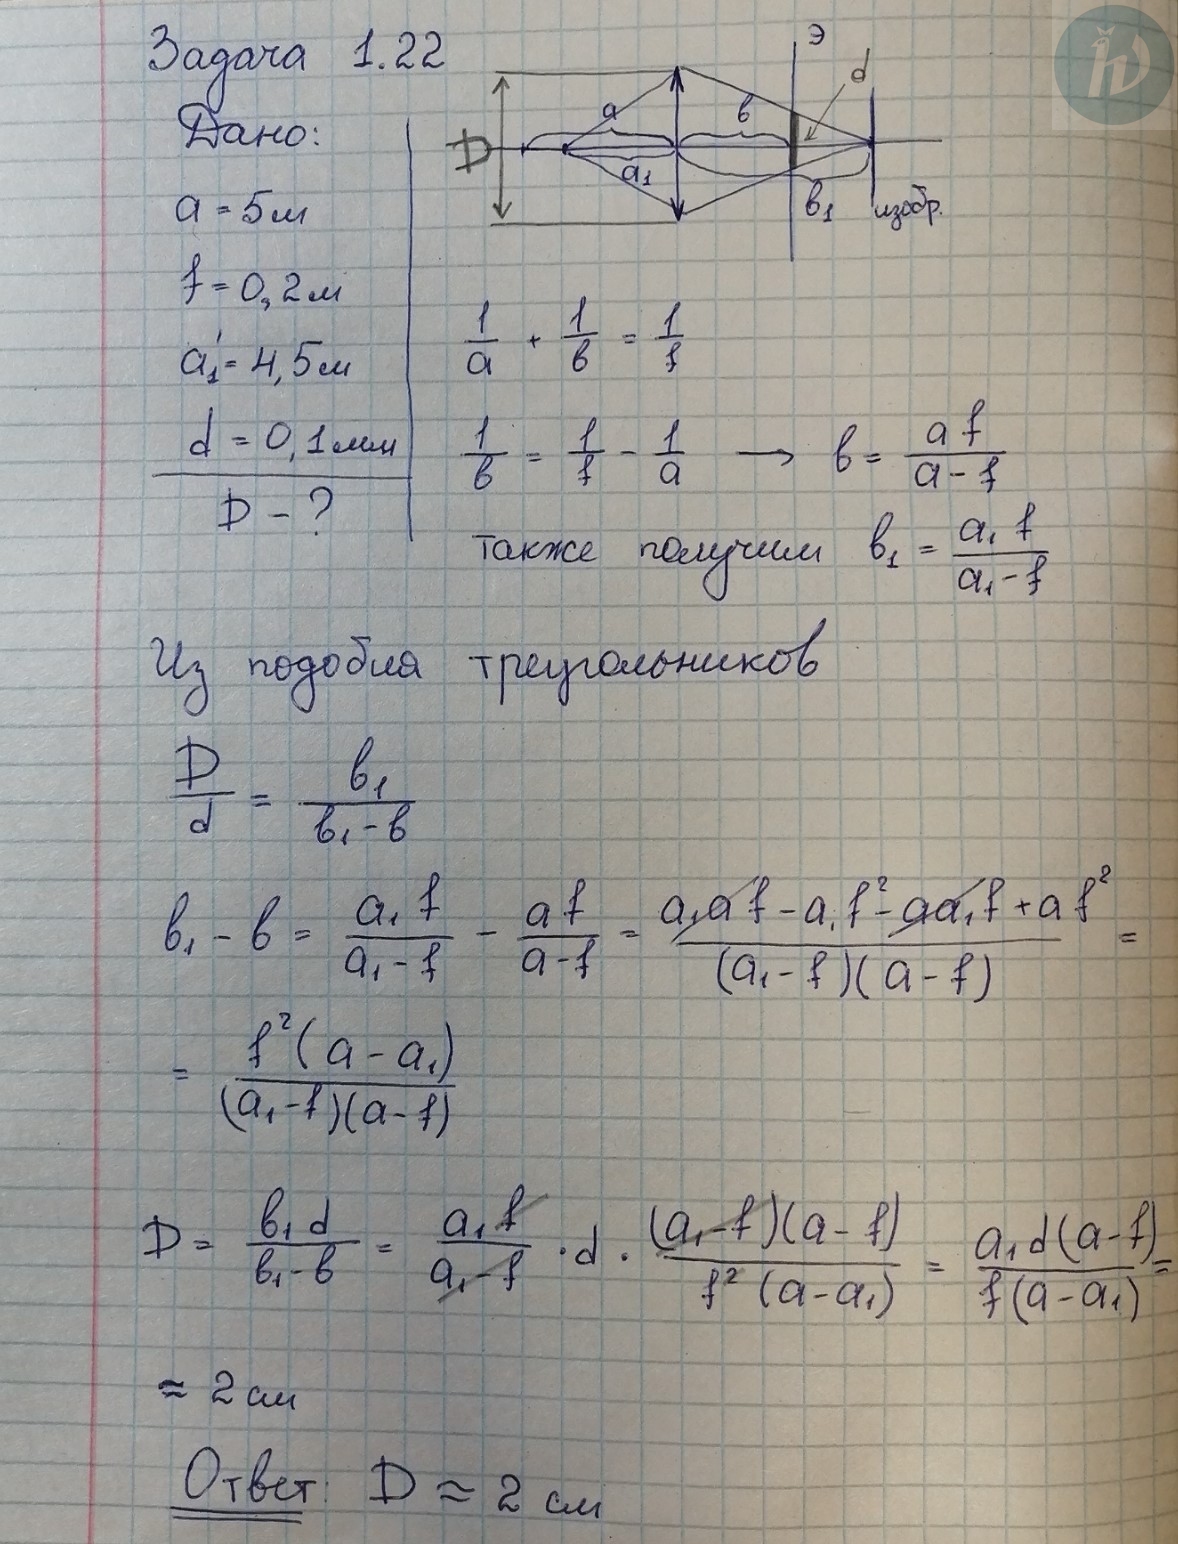 Задача 1.22
Дано:
a = 5м
f = 0,2м
a₁ = 4,5м
d = 0,1мм
D - ?
D a a₁ в в₁ Э d изобр.
1/a + 1/в = 1/f
1/в = 1/f - 1/a → в = af/(a - f)
также получим в₁ = a₁f/(a₁ - f)
Из подобия треугольников
D/d = в₁/(в₁ - в)
в₁ - в = a₁f/(a₁ - f) - af/(a - f) = (a₁af - a₁f² - aa₁f + af²)/((a₁ - f)(a - f)) =
= f²(a - a₁)/((a₁ - f)(a - f))
D = в₁d/(в₁ - в) = a₁f/(a₁ - f) · d · (a₁ - f)(a - f)/(f²(a - a₁)) = a₁d(a - f)/(f(a - a₁)) =
≈ 2 см
Ответ: D ≈ 2 см